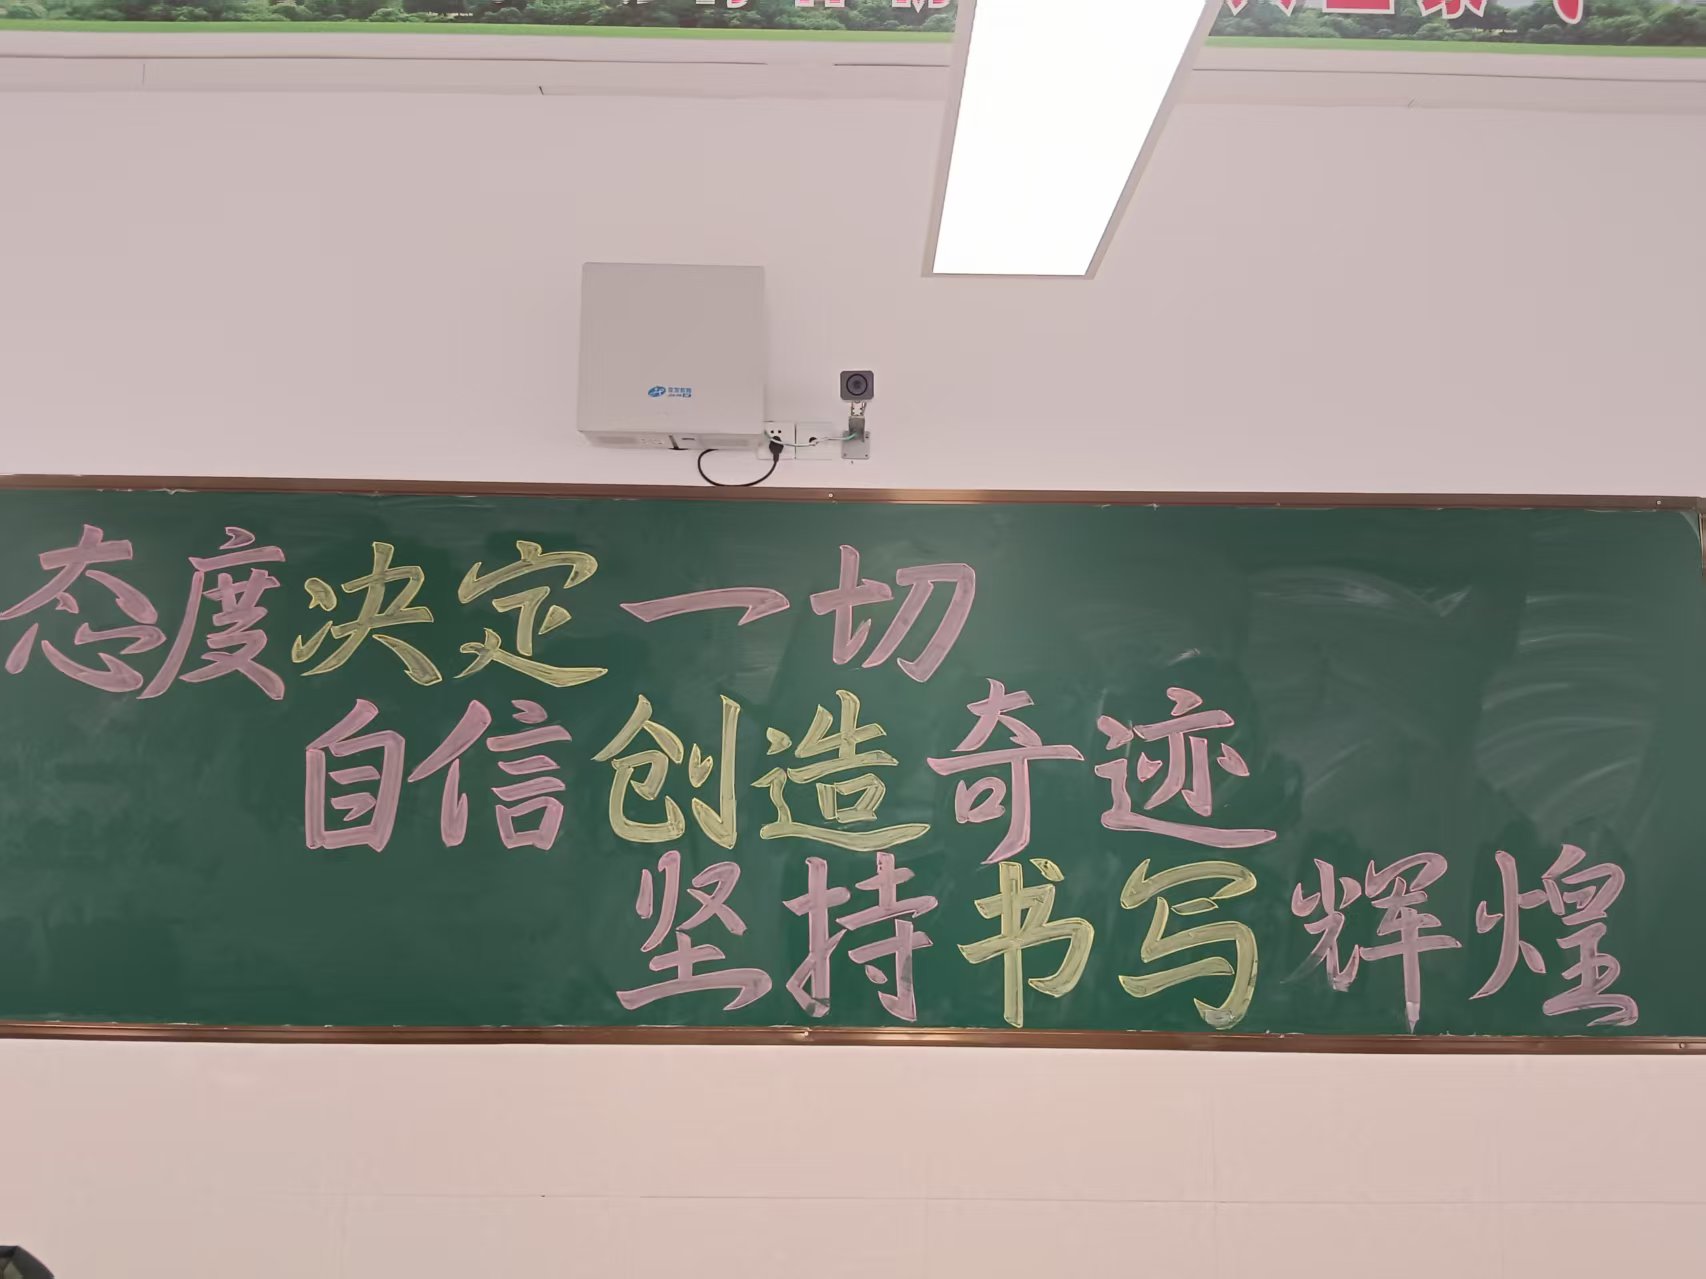 态度决定一切
自信创造奇迹
坚持书写辉煌